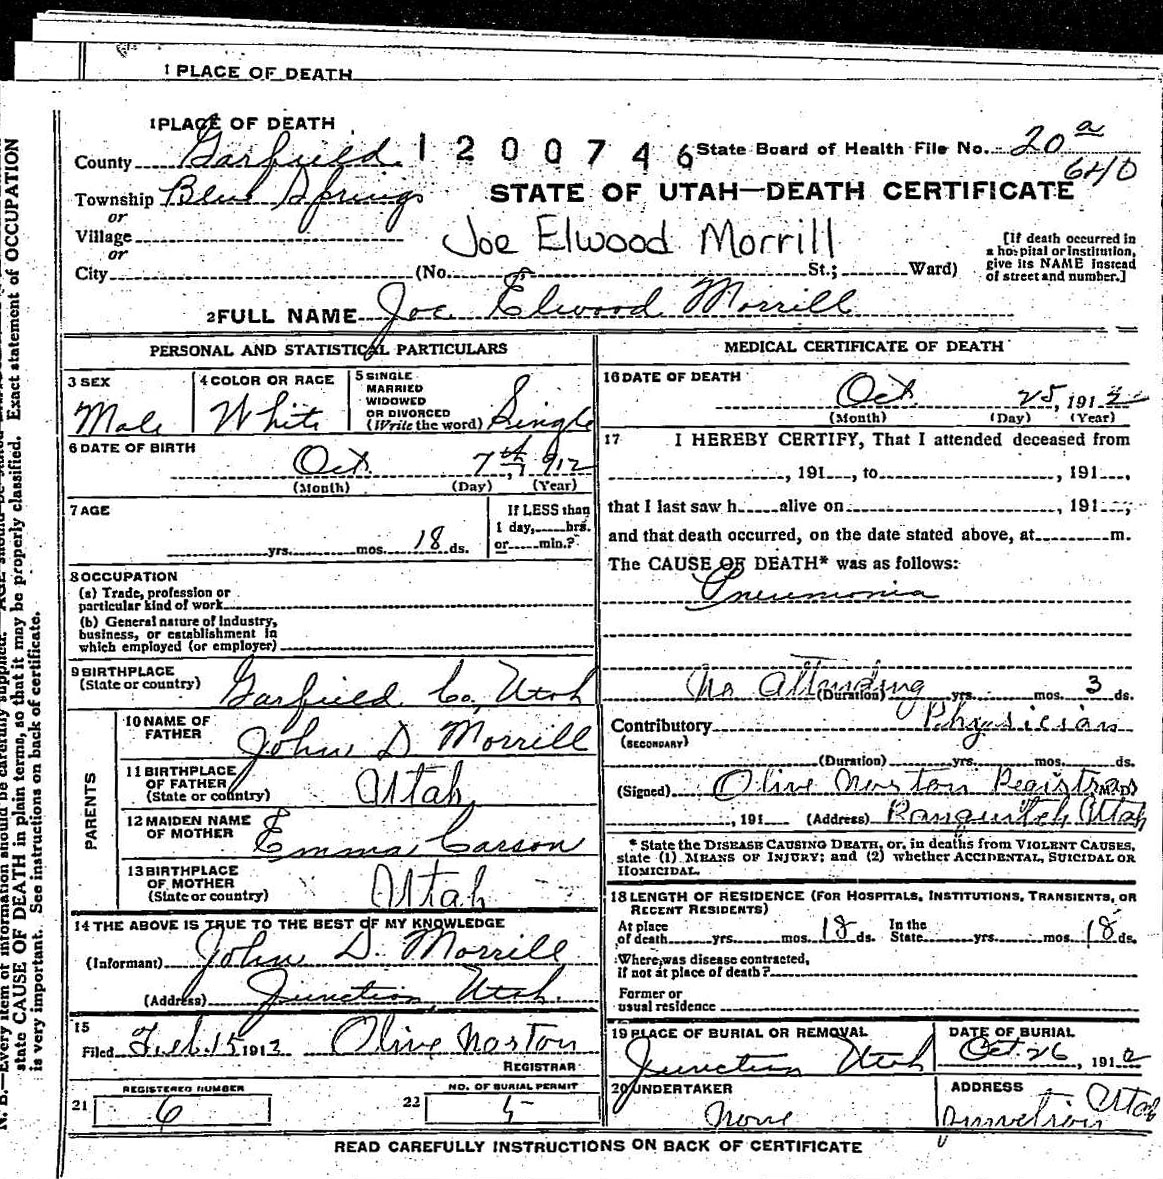 1 PLACE OF DEATH
1 PLACE OF DEATH
County Garfield
1200746
State Board of Health File No. 20 a
640
Township Blue Springs
STATE OF UTAH—DEATH CERTIFICATE
or
Village
Joe Elwood Morrill
or
City (No. St.; Ward)
[If death occurred in a hospital or institution, give its NAME instead of street and number.]
2 FULL NAME Joe Elwood Morrill
PERSONAL AND STATISTICAL PARTICULARS
3 SEX Male
4 COLOR OR RACE White
5 SINGLE MARRIED WIDOWED OR DIVORCED (Write the word) Single
6 DATE OF BIRTH Oct 7th, 1912
(Month) (Day) (Year)
7 AGE
yrs. mos. 18 ds.
If LESS than 1 day, hrs. or min.?
8 OCCUPATION
(a) Trade, profession or particular kind of work
(b) General nature of industry, business, or establishment in which employed (or employer)
9 BIRTHPLACE (State or country) Garfield Co, Utah
PARENTS
10 NAME OF FATHER John D Morrill
11 BIRTHPLACE OF FATHER (State or country) Utah
12 MAIDEN NAME OF MOTHER Emma Carson
13 BIRTHPLACE OF MOTHER (State or country) Utah
14 THE ABOVE IS TRUE TO THE BEST OF MY KNOWLEDGE
(Informant) John D. Morrill
(Address) Junction, Utah.
15
Filed Feb. 15 1912 Olive Norton
REGISTRAR
21 REGISTERED NUMBER 6
22 NO. OF BURIAL PERMIT 5
MEDICAL CERTIFICATE OF DEATH
16 DATE OF DEATH Oct 25, 1912
(Month) (Day) (Year)
17 I HEREBY CERTIFY, That I attended deceased from
, 191 , to , 191 ,
that I last saw h alive on , 191 ;
and that death occurred, on the date stated above, at m.
The CAUSE OF DEATH* was as follows:
Pneumonia
No Attending
(Duration) yrs. mos. 3 ds.
Contributory Physician
(SECONDARY)
(Duration) yrs. mos. ds.
(Signed) Olive Norton Registrar M.D.
, 191 (Address) Panguitch Utah
* State the DISEASE CAUSING DEATH, or, in deaths from VIOLENT CAUSES, state (1) MEANS OF INJURY; and (2) whether ACCIDENTAL, SUICIDAL OR HOMICIDAL.
18 LENGTH OF RESIDENCE (FOR HOSPITALS, INSTITUTIONS, TRANSIENTS, OR RECENT RESIDENTS)
At place of death yrs. mos. 18 ds. In the State yrs. mos. 18 ds.
Where was disease contracted, if not at place of death?
Former or usual residence
19 PLACE OF BURIAL OR REMOVAL Junction Utah
DATE OF BURIAL Oct. 26, 1912
20 UNDERTAKER None
ADDRESS Junction Utah
READ CAREFULLY INSTRUCTIONS ON BACK OF CERTIFICATE
N. B.—Every item of information should be carefully supplied. AGE should be stated
state CAUSE OF DEATH in plain terms, so that it may be properly classified. Exact statement of OCCUPATION
is very important. See instructions on back of certificate.